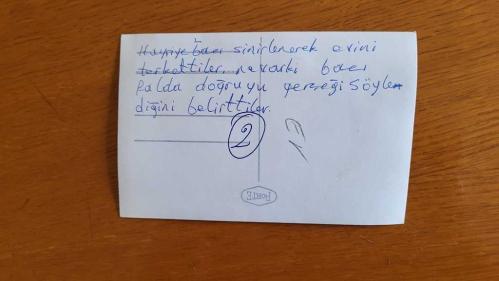 Hayriye bacı sinirlenerek evini
terkettiler, navarki bacı
Falda doğruyu gerçeği söylen
diğini belirttiler.
2